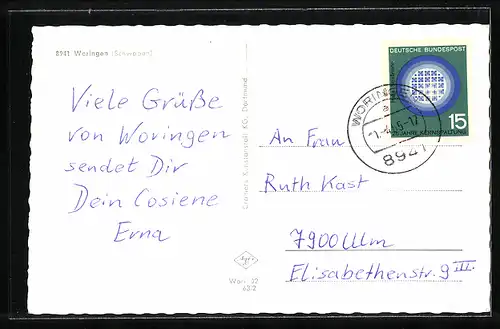 8941 Woringen (Schwaben)
Viele Grüße
von Woringen
sendet Dir
Dein Cosiene
Erna
Cramers Kunstanstalt KG, Dortmund
Agfa
Wori 32
632
DEUTSCHE BUNDESPOST
15
25 JAHRE KERNSPALTUNG
WORINGEN
8941
An Frau
Ruth Kast
7900 Ulm
Elisabethenstr. 9 III.